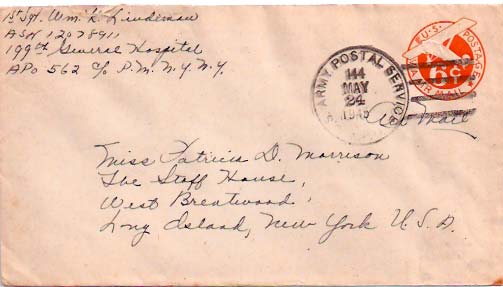 1st Sgt. Wm. K. Lindeman
ASN 12078911
199th General Hospital
APO 562 c/o P.M. N.Y. N.Y.
U.S. POSTAGE
6¢
VIA AIR MAIL
ARMY POSTAL SERVICE
144
MAY
24
1945
Air Mail
Miss Patricia D. Morrison
The Staff House,
West Brentwood,
Long Island, New York U.S.A.